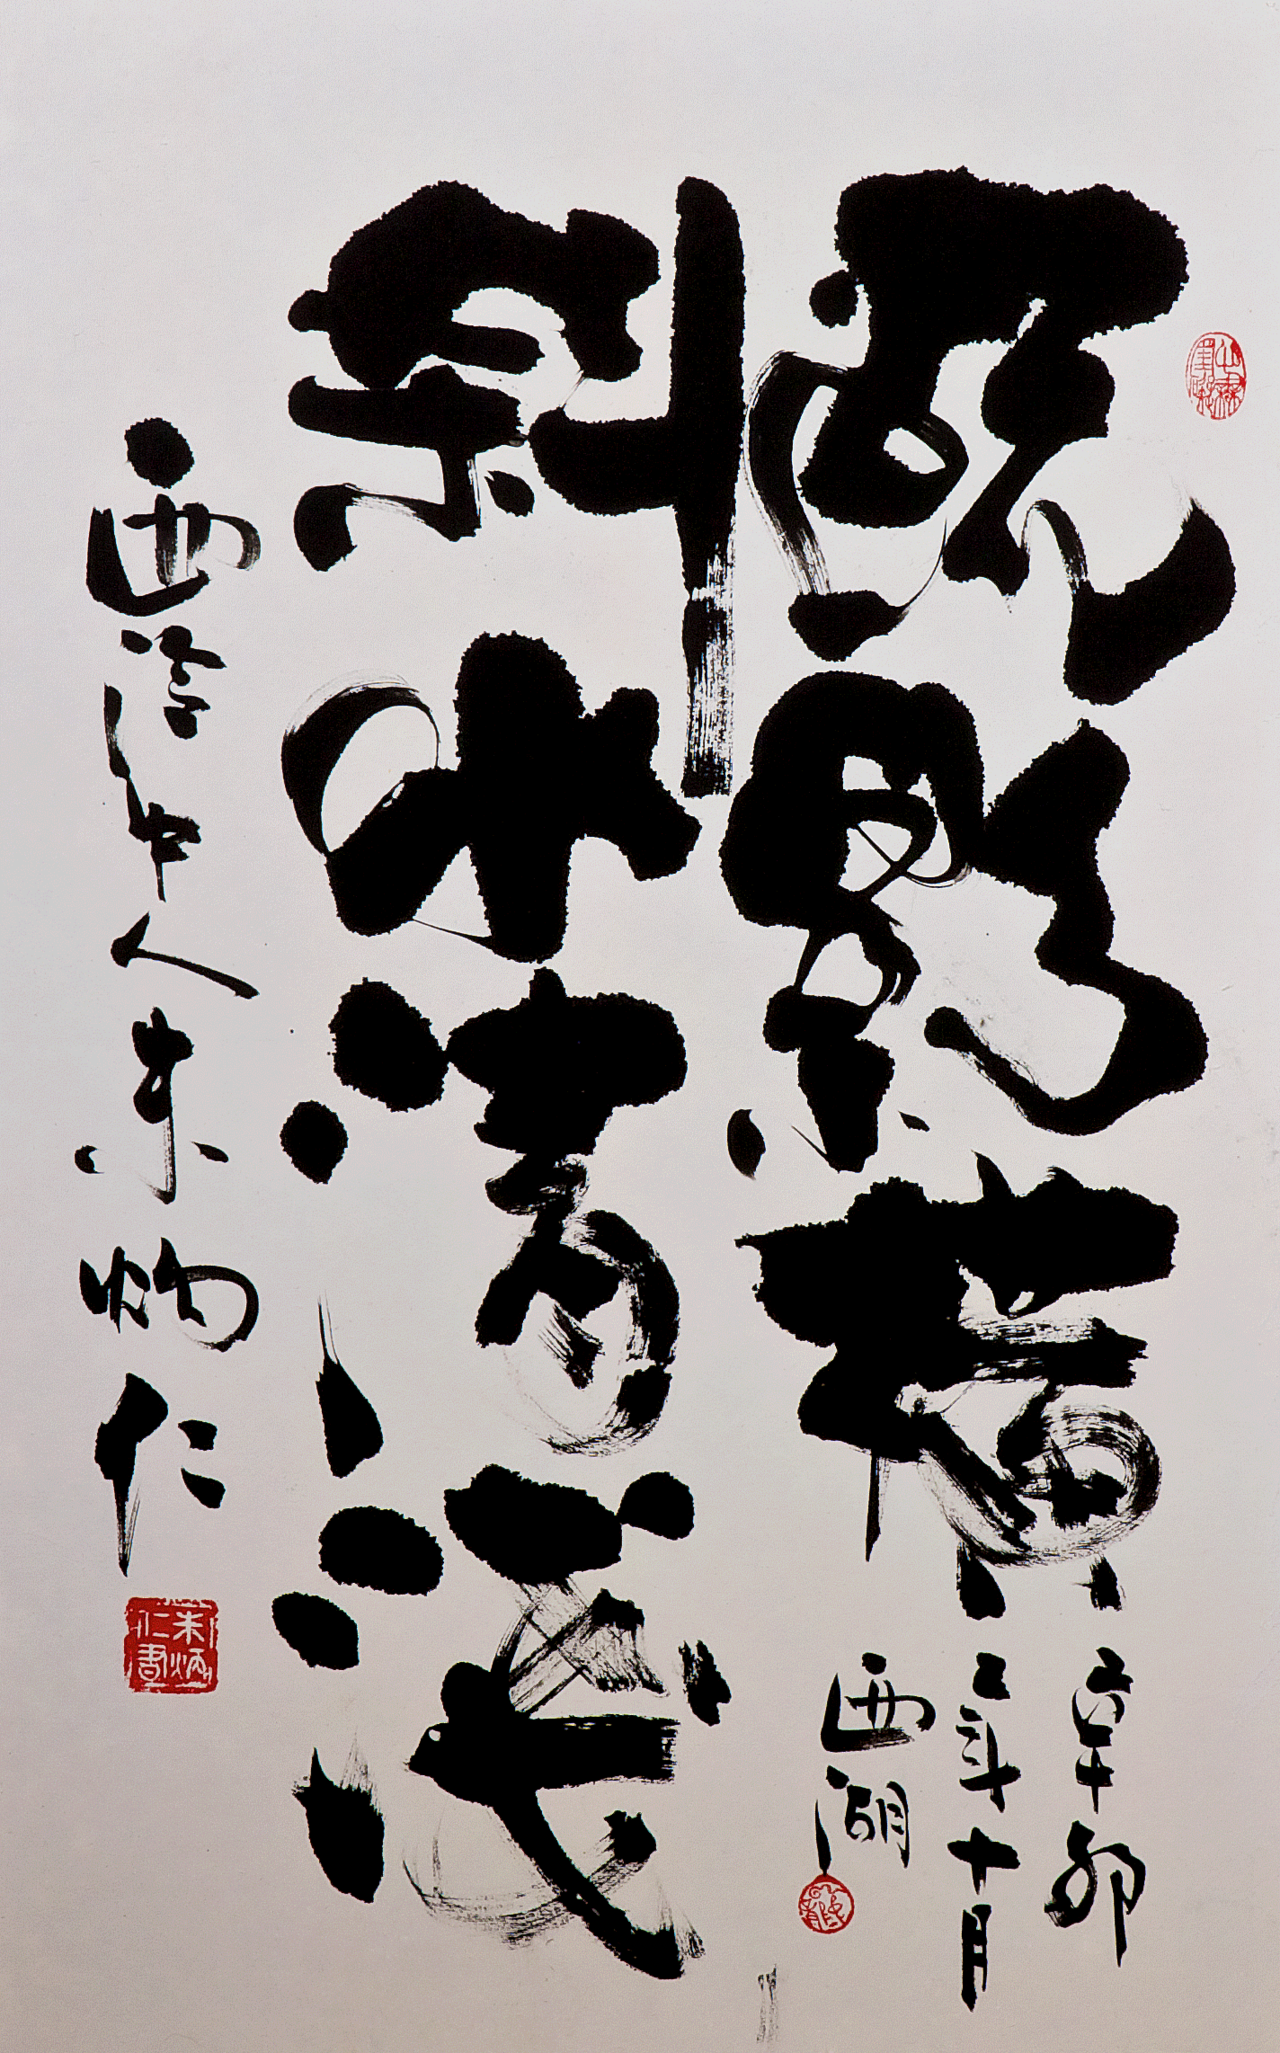 疏影橫
辛卯
之年十月
西湖
斜水清淺
西泠中人朱炳仁
朱炳仁書